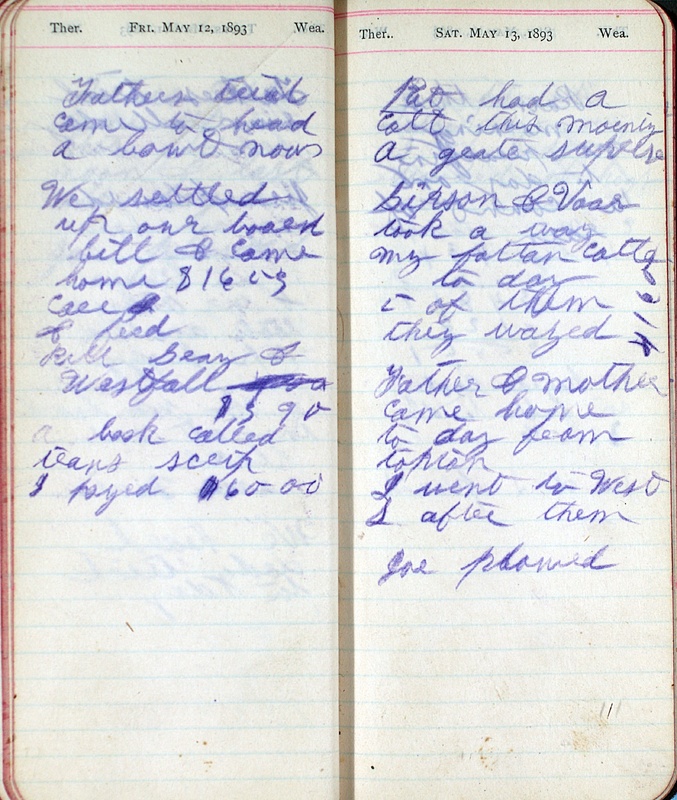 Ther. FRI. MAY 12, 1893 Wea.
Fathers trial
come to head
a bout noon
We settled
up our board
bill & come
home $16
& fed
Bill &
Westfall
$5 90
a book called
trans scrip
I payed $60 00
Ther.. SAT. MAY 13, 1893 Wea.
Pat had a
colt this morning
a
& Voor
took a way
my fattan cattle
to day
of them
they wayed
Father & mother
came home
to day from
I went to West
after them
Joe plowed